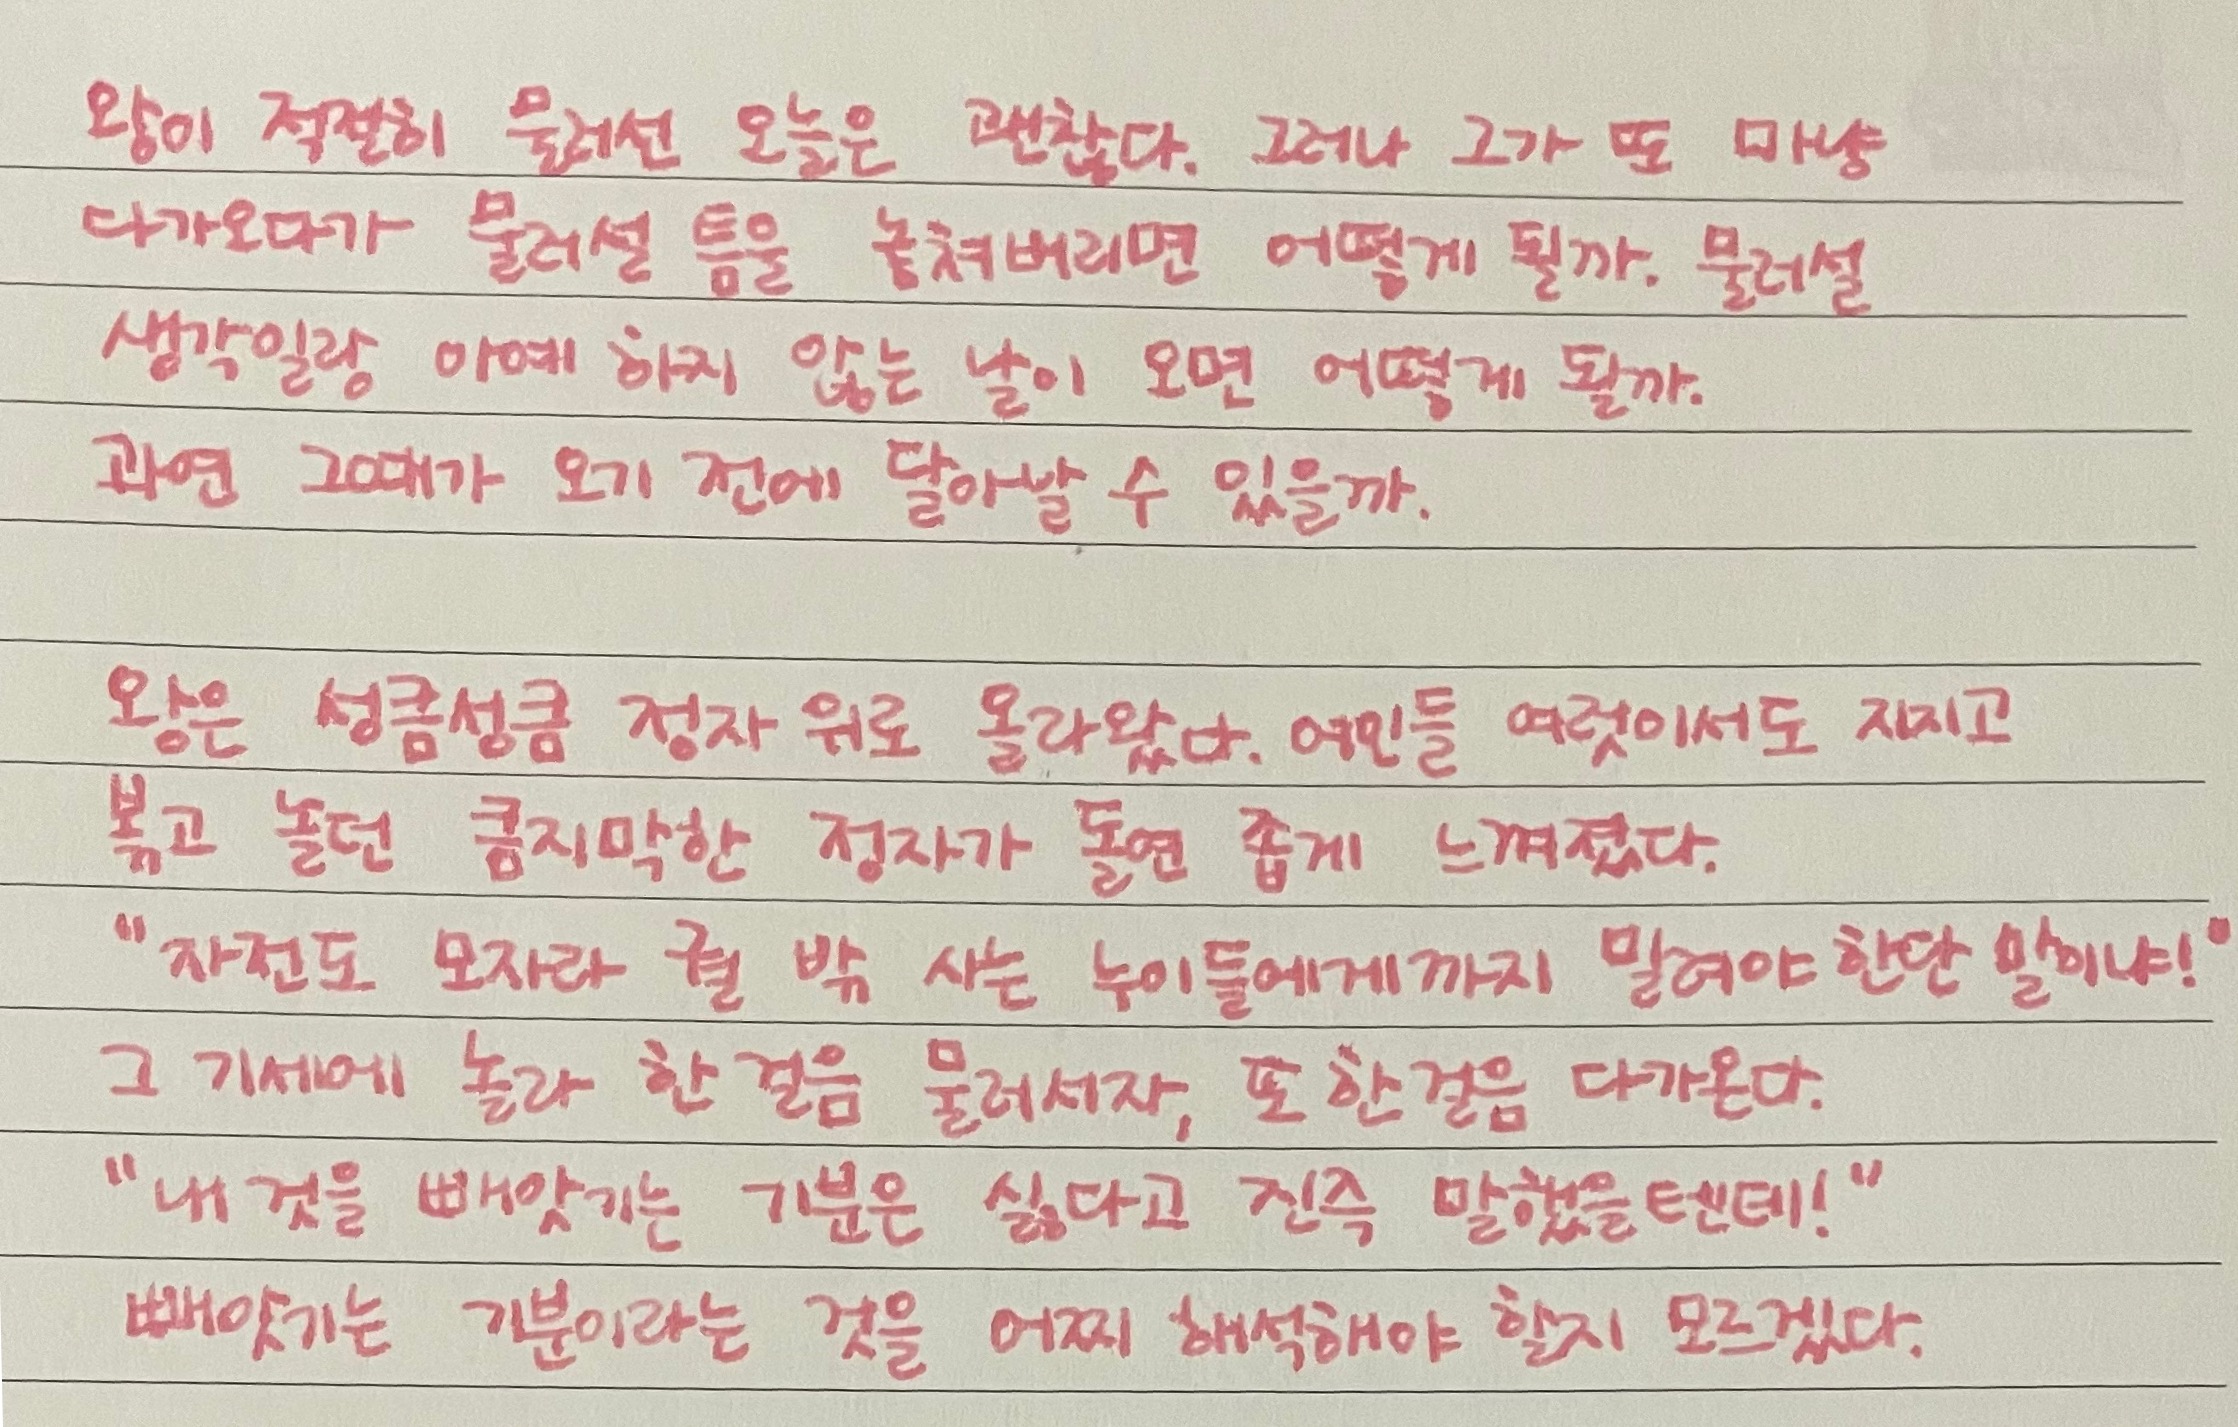 왕이 적절히 물러선 오늘은 괜찮다. 그러나 그가 또 마냥
다가오다가 물러설 틈을 놓쳐버리면 어떻게 될까. 물러설
생각일랑 아예 하지 않는 날이 오면 어떻게 될까.
과연 그때가 오기 전에 달아날 수 있을까.
왕은 성큼성큼 정자 위로 올라왔다. 여인들 여럿이서도 지지고
볶고 놀던 큼지막한 정자가 돌연 좁게 느껴졌다.
"자전도 모자라 궐 밖 사는 누이들에게까지 밀려야 한단 말이냐!"
그 기세에 놀라 한 걸음 물러서자, 또 한 걸음 다가온다.
"내 것을 빼앗기는 기분은 싫다고 진즉 말했을텐데!"
빼앗기는 기분이라는 것을 어찌 해석해야 할지 모르겠다.